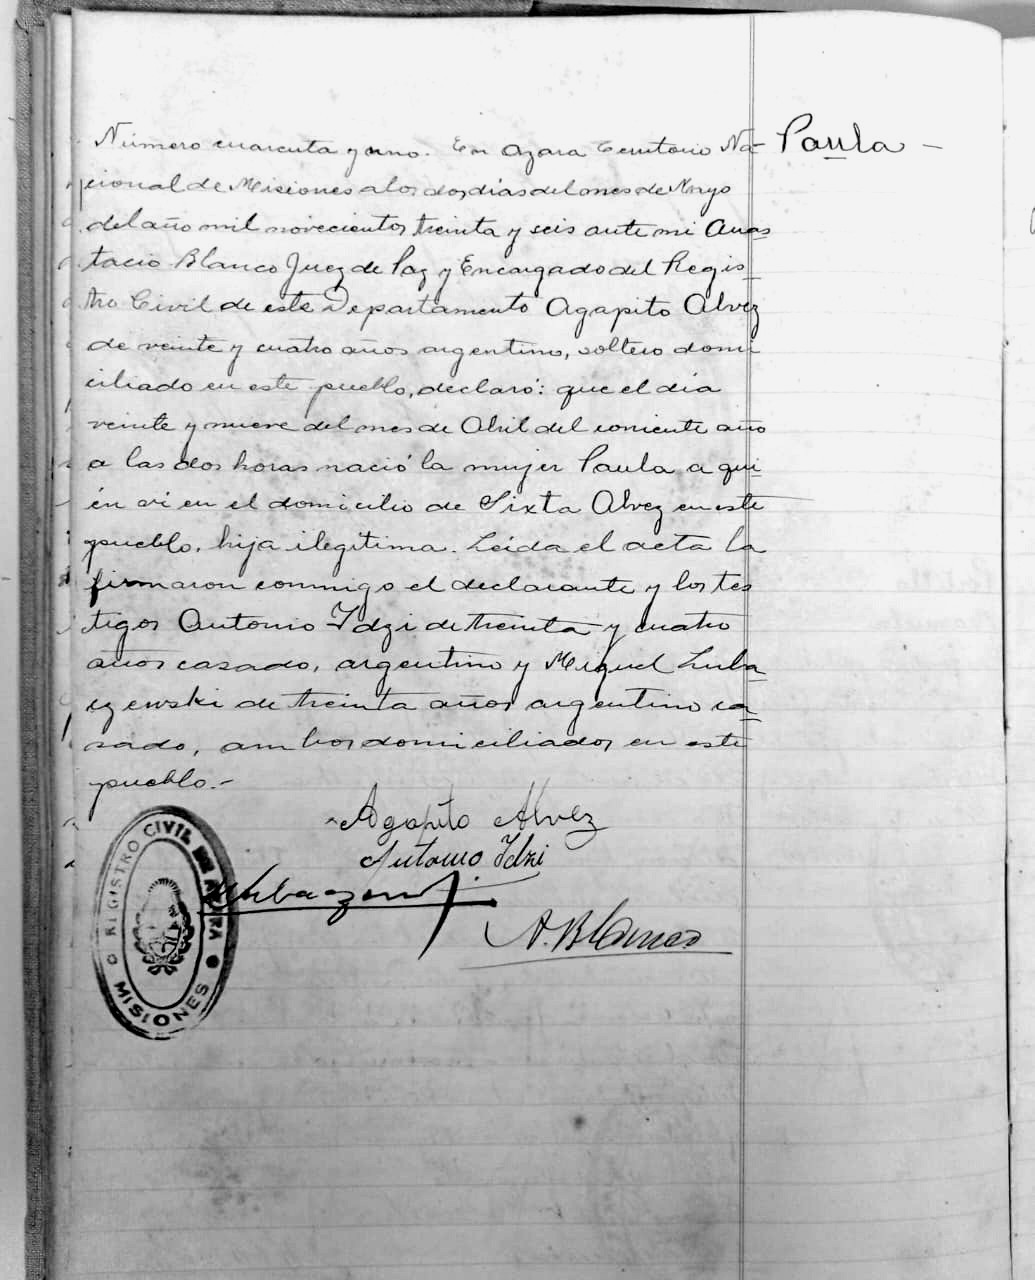 Número cuarenta y uno. En Azara Territorio Na-
Paula -
cional de Misiones a los dos días del mes de Mayo
del año mil novecientos treinta y seis ante mi Anas
tacio Blanco Juez de Paz y Encargado del Regis
tro Civil de este Departamento Agapito Alvez
de veinte y cuatro años argentino, soltero domi
ciliado en este pueblo, declaró: que el día
veinte y nueve del mes de Abril del corriente año
a las dos horas nació la mujer Paula a qui
én vi en el domicilio de Sixta Alvez en este
pueblo, hija ilegítima. Leída el acta la
firmaron conmigo el declarante y los tes
tigos Antonio Idzi de treinta y cuatro
años casado, argentino y Miguel Luba
czewski de treinta años argentino ca
sado, ambos domiciliados en este
pueblo.-
Agapito Alvez
Antonio Idzi
A. Blanco
REGISTRO CIVIL DE AZARA
MISIONES